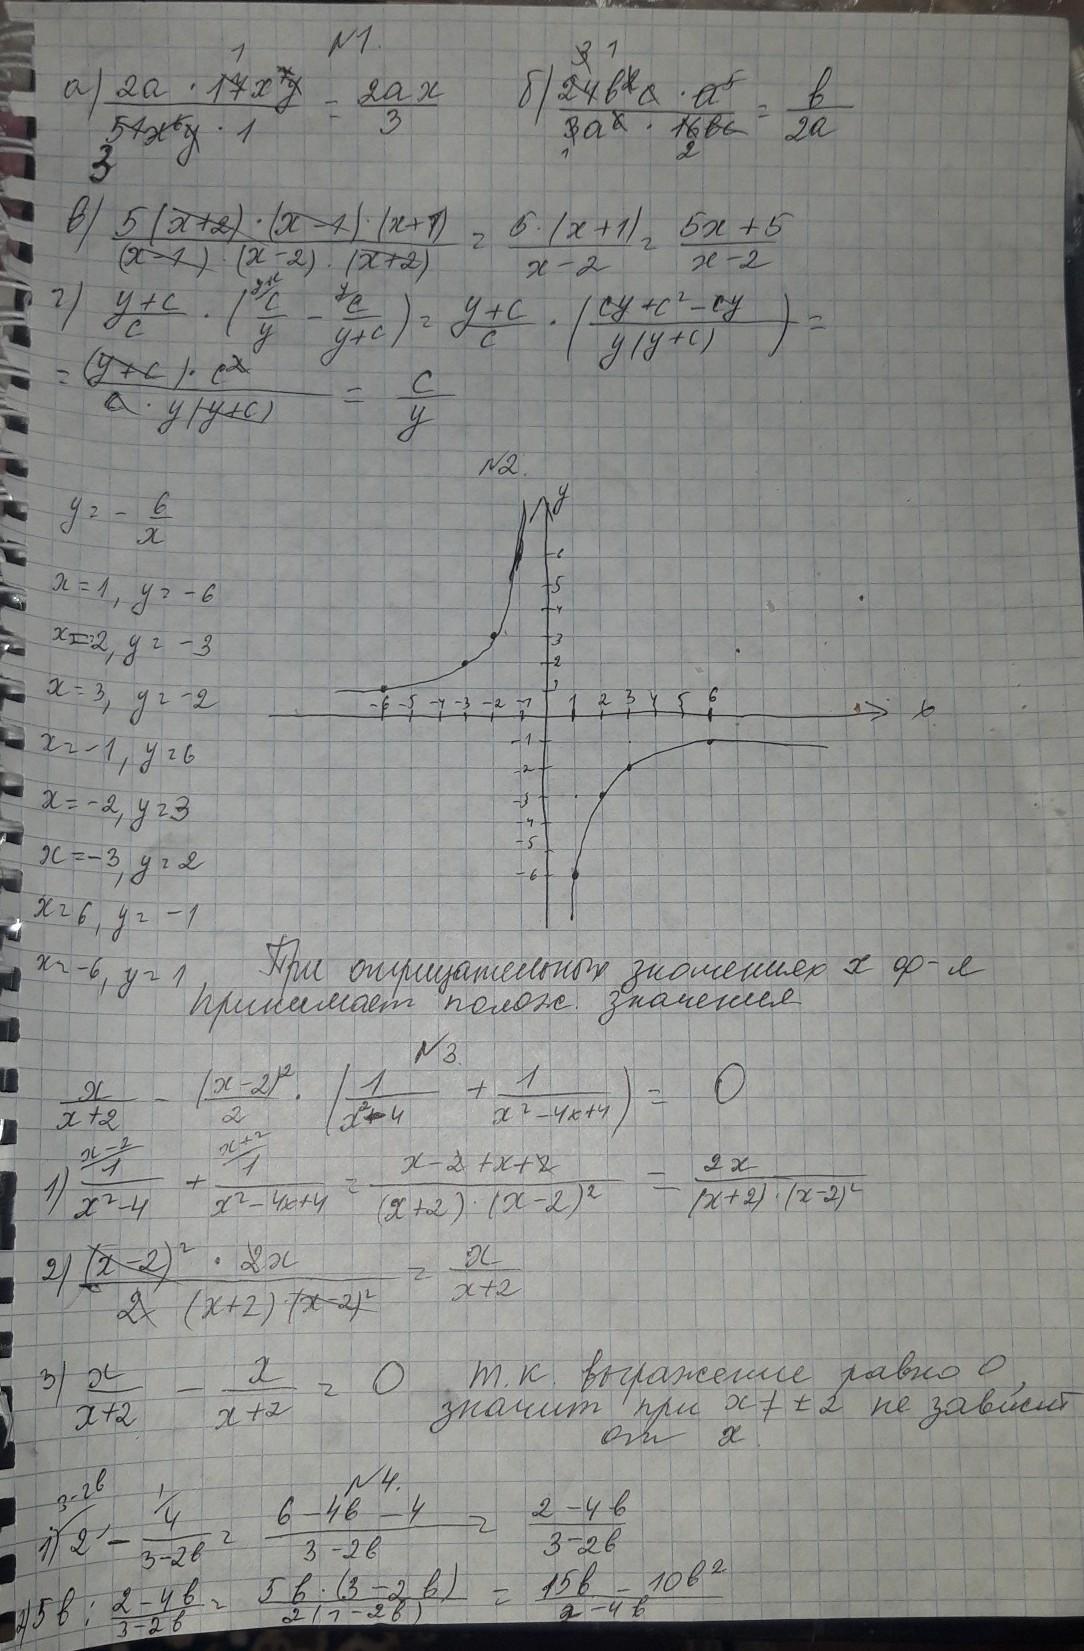 №1.
а) (2a · 17x⁷y)/(51x⁶y · 1) = 2ax/3   б) (24b²c · a⁵)/(3a⁶ · 16bc) = b/2a
в) (5(x+2)·(x-1)·(x+1))/((x-1)·(x-2)·(x+2)) = 5·(x+1)/(x-2) = (5x+5)/(x-2)
г) (y+c)/c · (c/y - c/(y+c)) = (y+c)/c · ((cy+c²-cy)/(y(y+c))) =
= ((y+c)·c²)/(c·y(y+c)) = c/y
№2.
y = - 6/x
x=1, y=-6
x=2, y=-3
x=3, y=-2
x=-1, y=6
x=-2, y=3
x=-3, y=2
x=6, y=-1
x=-6, y=1
y
6
5
4
3
2
1
-6 -5 -4 -3 -2 -1 1 2 3 4 5 6
x
-1
-2
-3
-4
-5
-6
При отрицательных значениях x ф-я
принимает полож. значения
№3.
x/(x+2) - (x-2)²/2 · (1/(x²-4) + 1/(x²-4x+4)) = 0
1) 1/(x²-4) + 1/(x²-4x+4) = (x-2+x+2)/((x+2)·(x-2)²) = 2x/((x+2)·(x-2)²)
2) ((x-2)²·2x)/(2(x+2)·(x-2)²) = x/(x+2)
3) x/(x+2) - x/(x+2) = 0 т.к. выражение равно 0,
значит при x≠±2 не зависит
от x.
№4.
1) 2 - 4/(3-2b) = (6-4b-4)/(3-2b) = (2-4b)/(3-2b)
2) 5b : (2-4b)/(3-2b) = (5b·(3-2b))/(2(1-2b)) = (15b-10b²)/(2-4b)